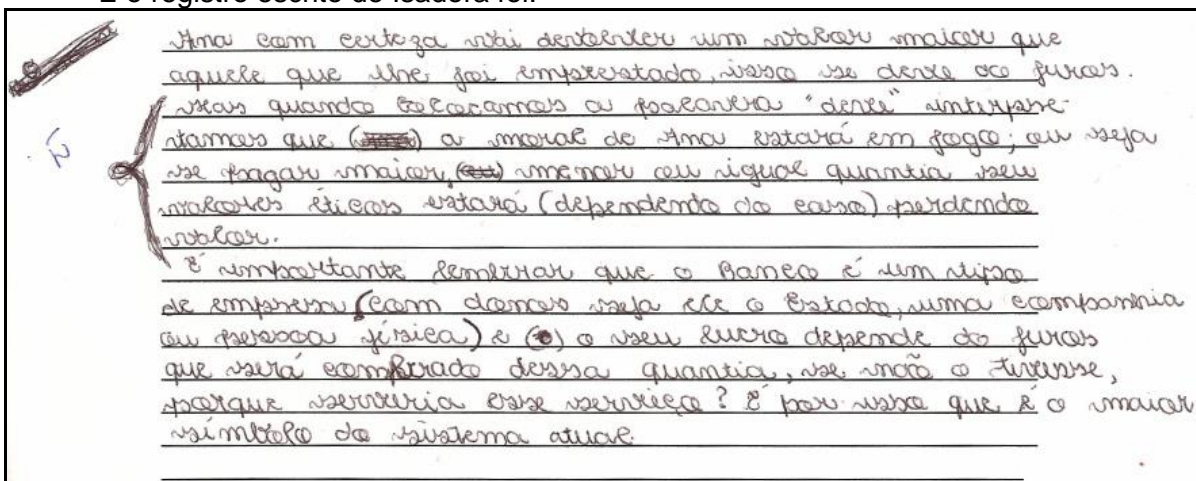 E o registro escrito de Isadora foi:
Ana com certeza vai devolver um valor maior que
aquele que lhe foi emprestado, isso se deve ao juros.
Mas quando colocamos a palavra "deve" interpre-
tamos que () a moral de Ana estará em jogo; ou seja
se pagar maior, menor ou igual quantia seu
valores éticos estará (dependendo do caso) perdendo
valor.
É importante lembrar que o Banco é um tipo
de empresa (com donos seja ele o Estado, uma companhia
ou pessoa física) e () o seu lucro depende do juros
que será comprado dessa quantia, se não o tivesse,
porque serviria esse serviço? É por isso que é o maior
símbolo do sistema atual.